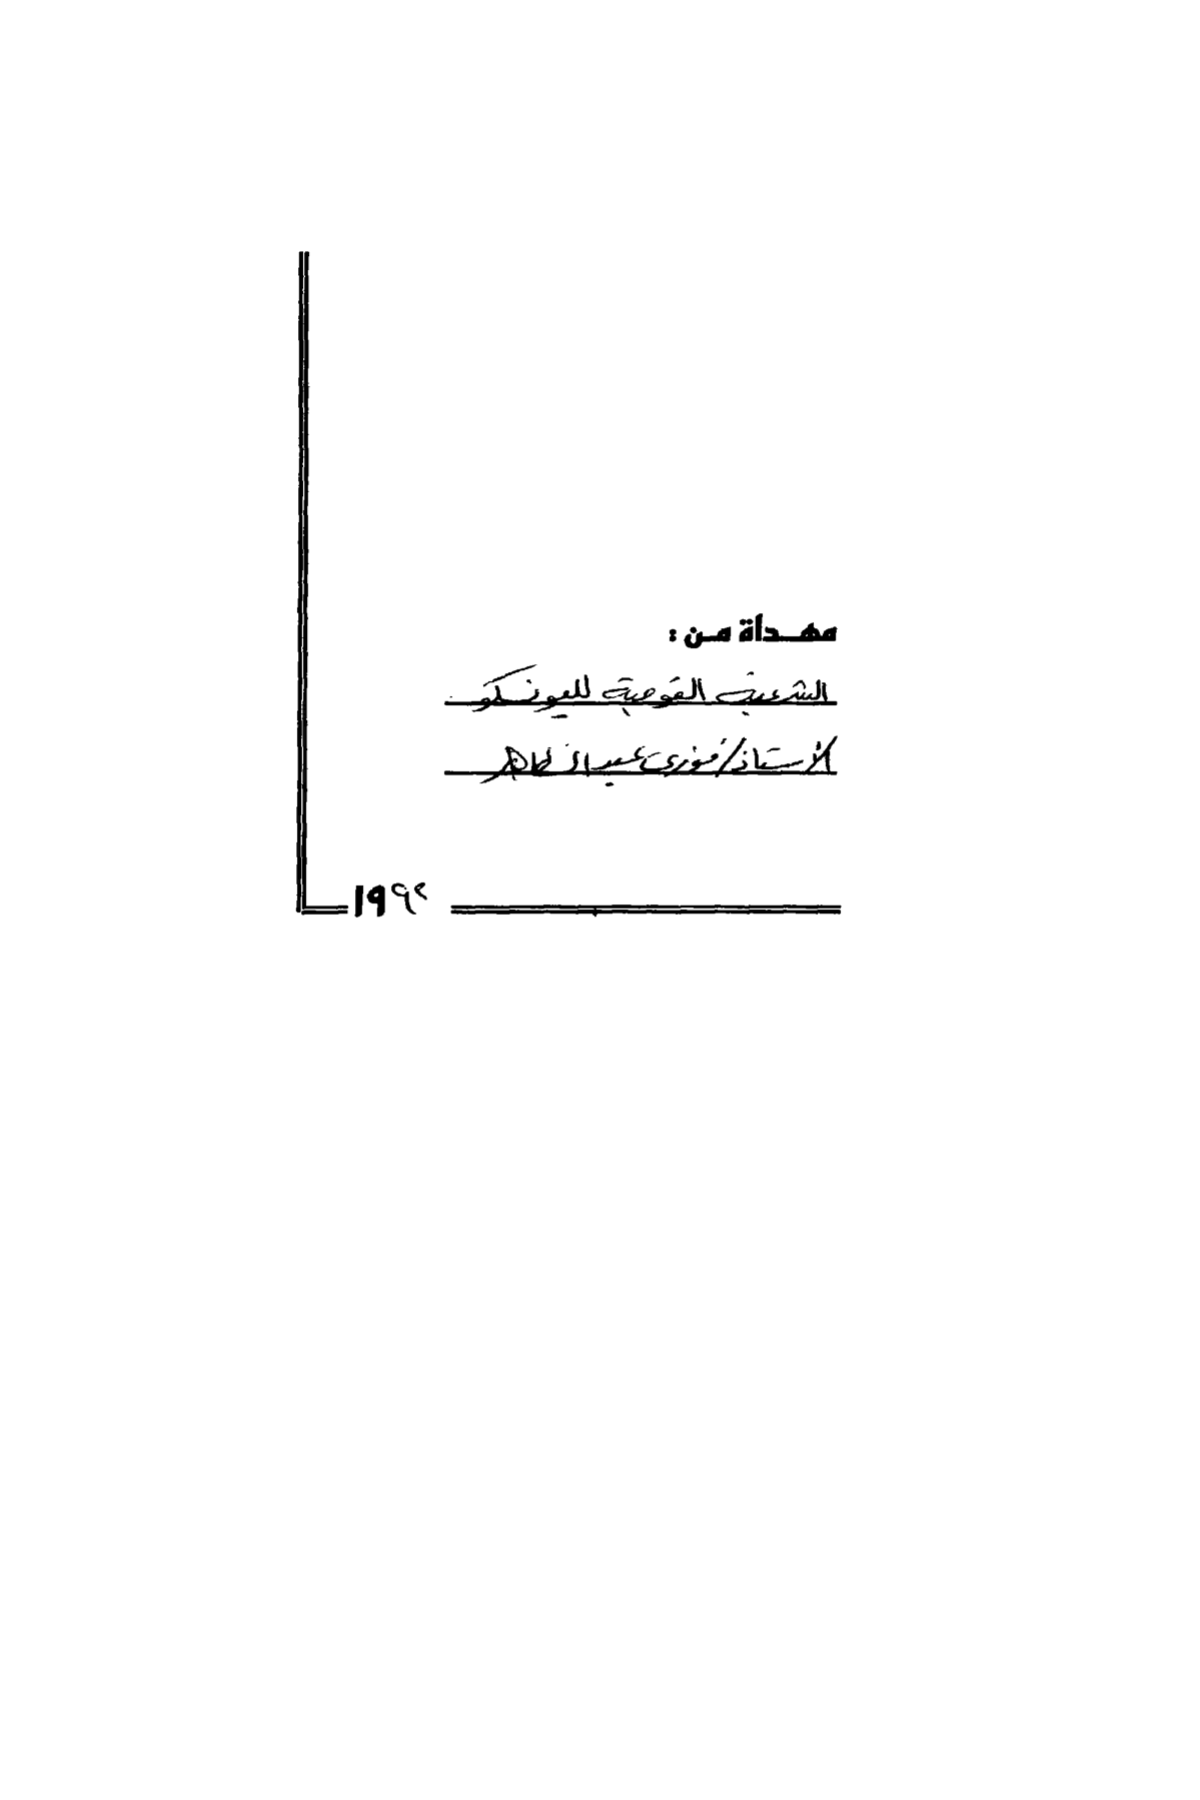 مهداة من :
الشعبة القومية لليونسكو
الأستاذ/ فوزى عبد الظاهر
١٩٩٢